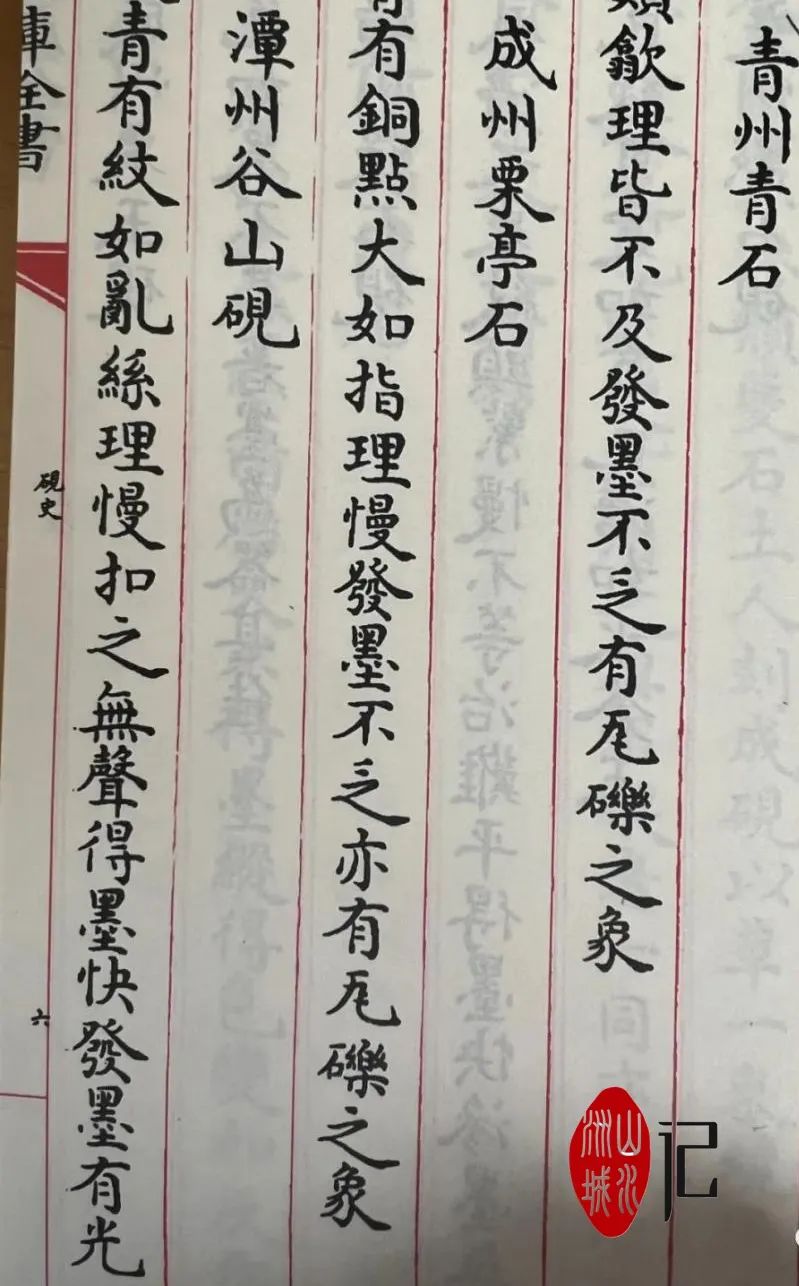 青州青石
類歙理皆不及發墨不乏有瓦礫之象
成州栗亭石
青有銅點大如指理慢發墨不乏亦有瓦礫之象
潭州谷山硯
青有紋如亂絲理慢扣之無聲得墨快發墨有光
庫全書
硯史
六
山水洲城
记